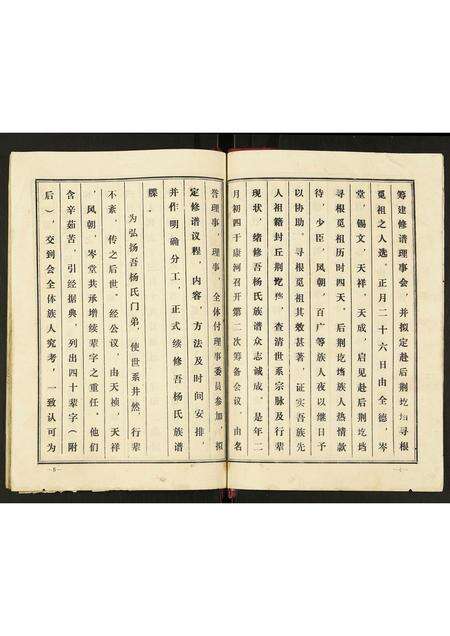 筹建修谱理事会，并拟定赴后荆圪垱寻根
觅祖之人选。正月二十六日由全德，岑
堂，锡文，天祥，天成，启见赴后荆圪垱
寻根觅祖历时四天。后荆圪垱族人热情款
待，少臣，风朝，百广等族人夜以继日予
以协助。寻根觅祖其效甚著，证实吾族先
人祖籍封丘荆圪垱，查清世系宗脉及行辈
现状，绪修吾杨氏族谱众志诚成。是年二
月初四于康河召开第二次筹备会议，由名
誉理事，理事，全体付理事委员参加，拟
定修谱议程，内容，方法及时间安排，
并作明确分工，正式续修吾杨氏族谱
牒。
为弘扬吾杨氏门弟，使世系井然，行辈
不紊，传之后世。经公议，由天桢，天祥
，风朝，岑堂共承增续辈字之重任。他们
含辛茹苦，引经据典，列出四十辈字（附
后），交到会全体族人究考，一致认可为